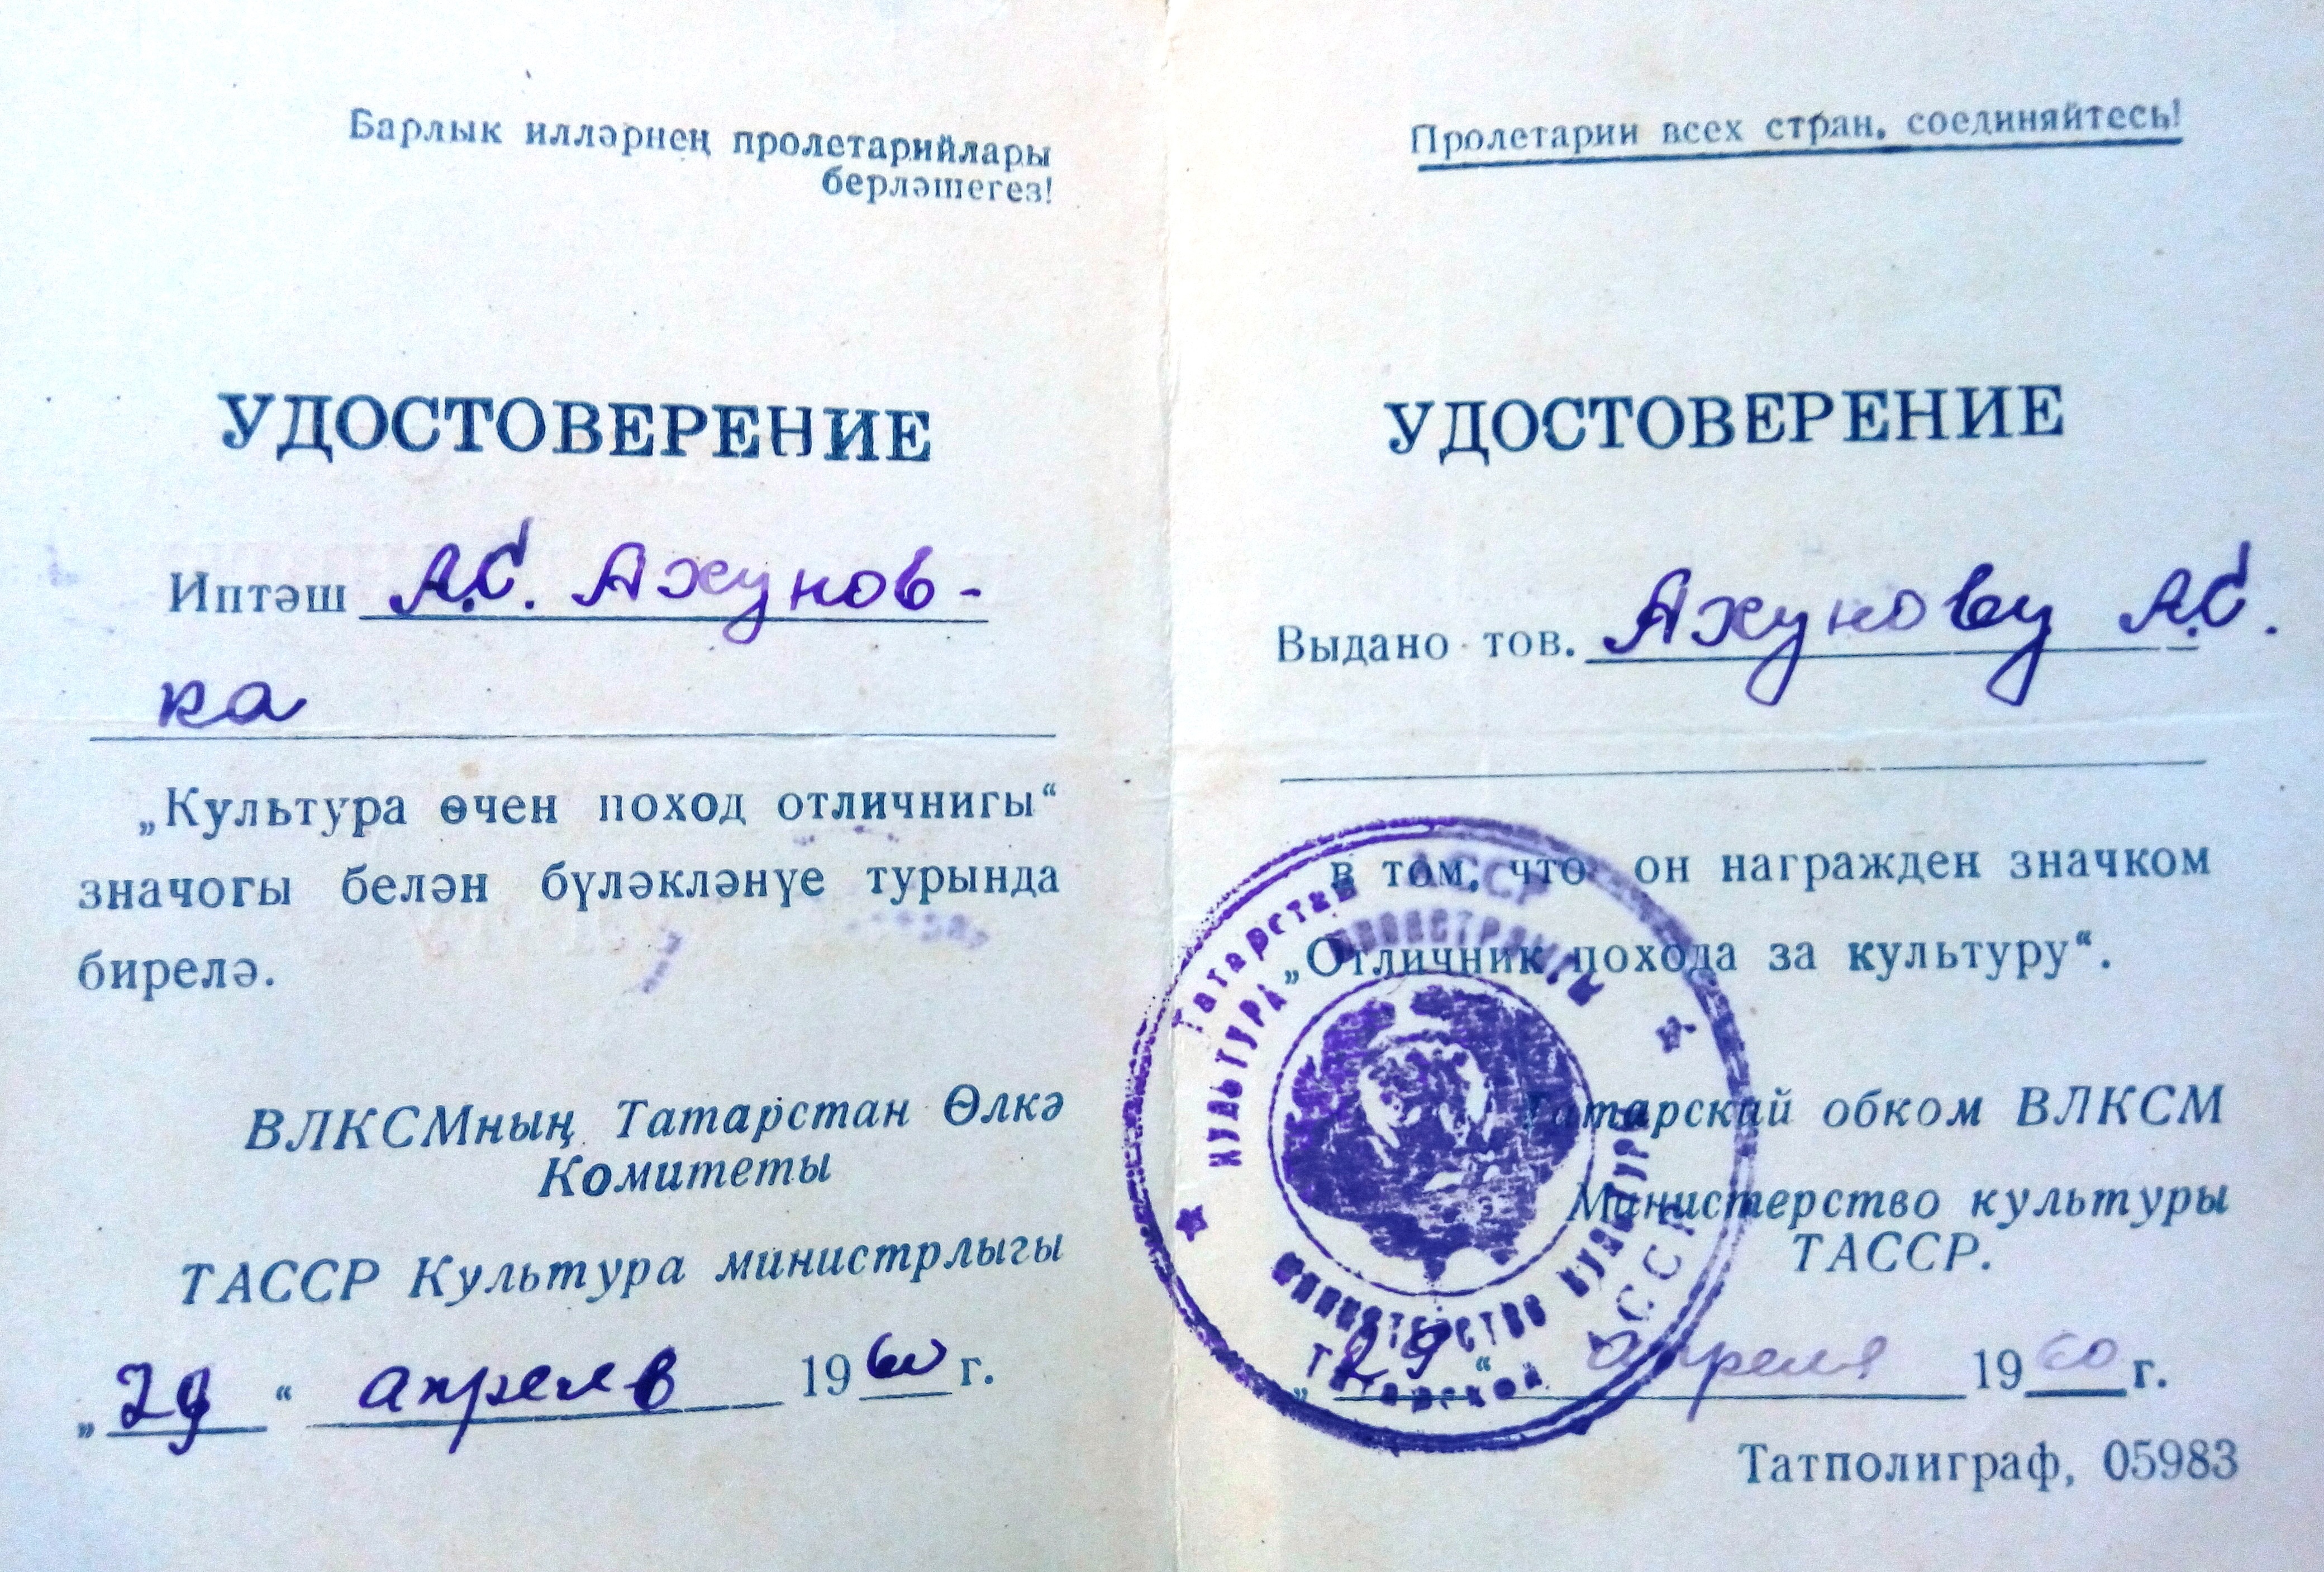 Барлык илләрнең пролетарийлары
берләшегез!
УДОСТОВЕРЕНИЕ
Иптәш А.С. Ахунов-
ка
„Культура өчен поход отличнигы“
значогы белән бүләкләнүе турында
бирелә.
ВЛКСМның Татарстан Өлкә
Комитеты
ТАССР Культура министрлыгы
„29“ апрель 1960 г.
Пролетарии всех стран, соединяйтесь!
УДОСТОВЕРЕНИЕ
Выдано тов. Ахунову А.С.
в том, что он награжден значком
„Отличник похода за культуру“.
Татарский обком ВЛКСМ
Министерство культуры
ТАССР.
„29“ апреля 1960 г.
Татполиграф, 05983
Татарстан АССР
КУЛЬТУРА МИНИСТРЛЫГЫ
МИНИСТЕРСТВО КУЛЬТУРЫ
Татарской АССР